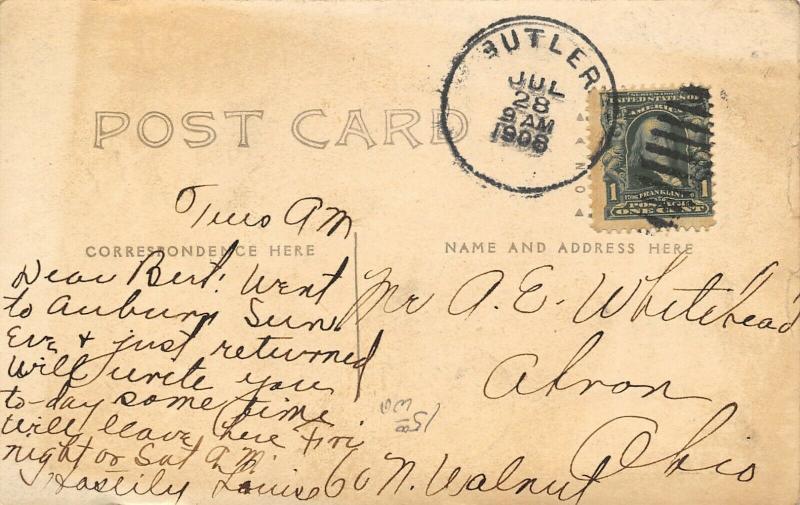 BUTLER
JUL
28
9 AM
1908
UNITED STATES OF
AMERICA
1 FRANKLIN 1
POSTAGE
ONE CENT
POST CARD
Tues AM
CORRESPONDENCE HERE
NAME AND ADDRESS HERE
Dear Bert! Went
to Auburn Sun.
Eve & just returned
Will write you
to-day some time.
Will leave here Fri
night or Sat A.M.
Hastily Louise
Mr A. E. Whitehead
Akron
Ohio
60 N. Walnut
1500